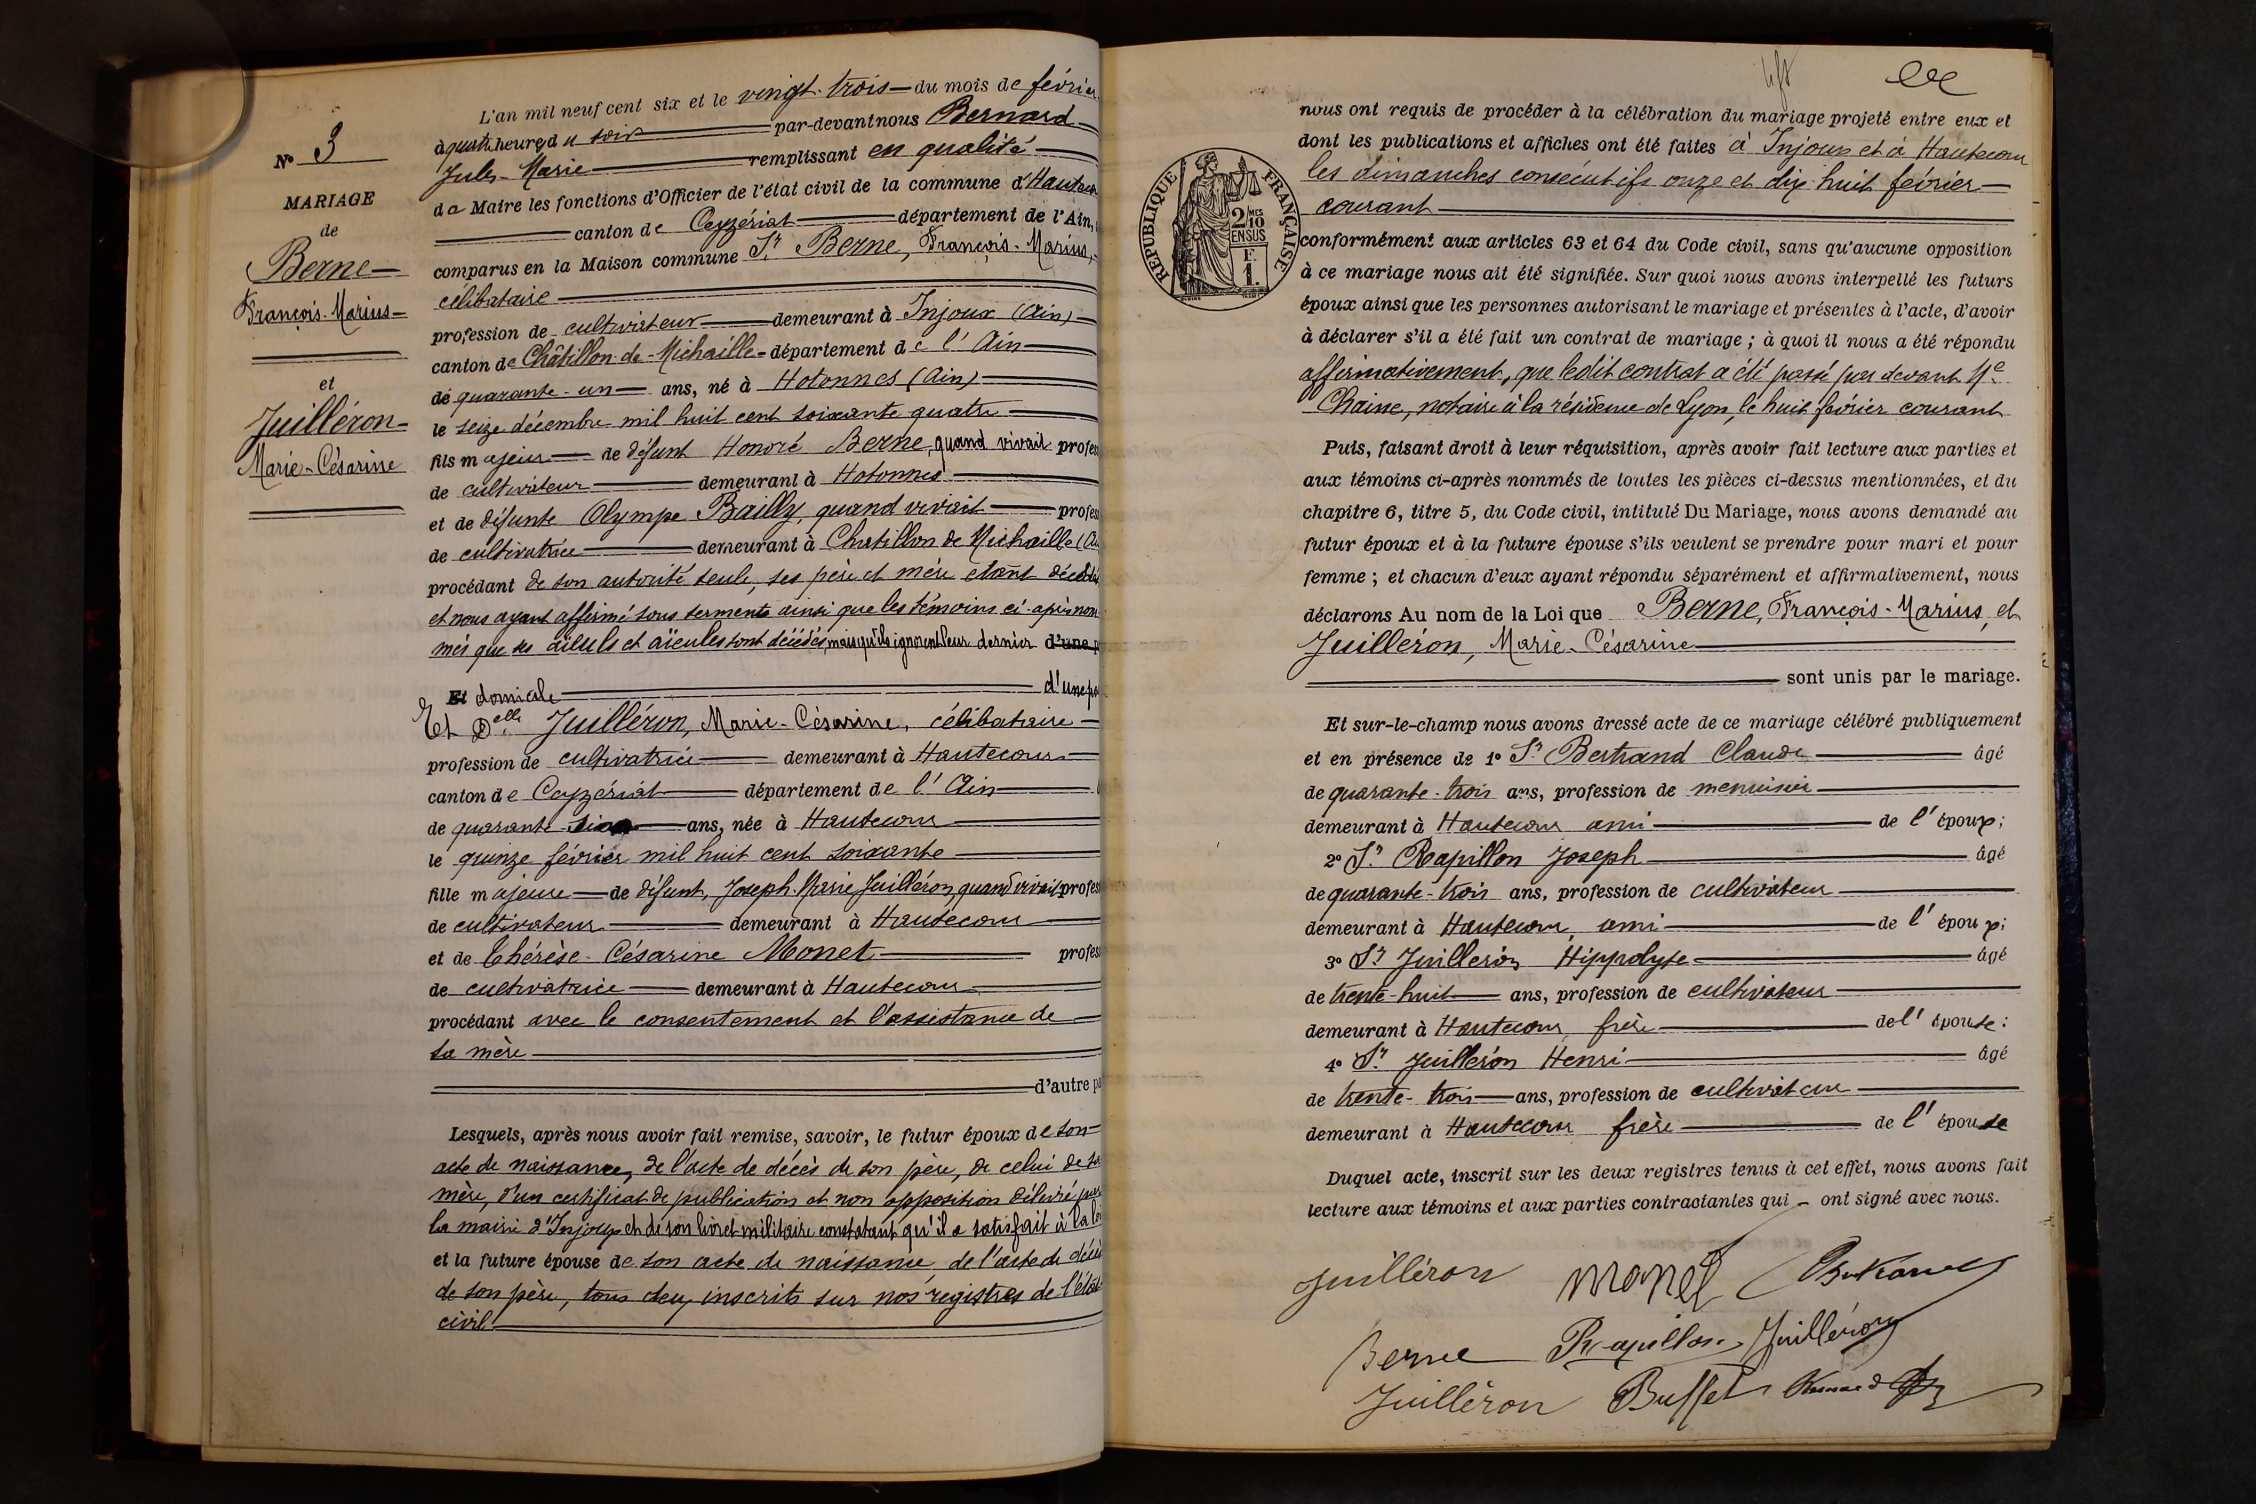 N° 3
MARIAGE
de
Berne
François-Marius
et
Juilléron
Marie-Césarine
L'an mil neuf cent six et le vingt-trois du mois de février
à quatre heures du soir par-devant nous Bernard
Jules-Marie remplissant en qualité
de Maire les fonctions d'Officier de l'état civil de la commune d'Hautecour
canton de Ceyzériat département de l'Ain,
comparus en la Maison commune Sr. Berne, François-Marius,
célibataire
profession de cultivateur demeurant à Injoux (Ain)
canton de Châtillon-de-Michaille département de l'Ain
de quarante-un ans, né à Hotonnes (Ain)
le seize décembre mil huit cent soixante quatre
fils majeur de défunt Honoré Berne, quand vivait profes
de cultivateur demeurant à Hotonnes
et de défunte Olympe Bailly, quand vivait profes
de cultivatrice demeurant à Chatillon de Michaille (Ai
procédant de son autorité seule, ses père et mère étant décédés
et nous ayant affirmé sous serment ainsi que les témoins ci-après nom
més que ses aïeuls et aïeules sont décédés mais qu'ils ignorent leur dernier d'une p
Et domicile d'une pa
Et Delle Juilléron, Marie-Césarine, célibataire
profession de cultivatrice demeurant à Hautecour
canton de Ceyzériat département de l'Ain
de quarante-six ans, née à Hautecour
le quinze février mil huit cent soixante
fille majeure de défunt, Joseph-Marie Juilléron, quand vivait profes
de cultivateur demeurant à Hautecour
et de Thérèse-Césarine Monet profes
de cultivatrice demeurant à Hautecour
procédant avec le consentement et l'assistance de
sa mère
d'autre pa
Lesquels, après nous avoir fait remise, savoir, le futur époux de son
acte de naissance, de l'acte de décès de son père, de celui de sa
mère, d'un certificat de publication et non opposition délivré par
la mairie d'Injoux et de son livret militaire constatant qu'il a satisfait à la loi
et la future épouse de son acte de naissance, de l'acte de décès
de son père, tous deux inscrits sur nos registres de l'état
civil
nous ont requis de procéder à la célébration du mariage projeté entre eux et
dont les publications et affiches ont été faites à Injoux et à Hautecour
les dimanches consécutifs onze et dix-huit février
courant
RÉPUBLIQUE FRANÇAISE
2/10 MES
EN SUS
F.
1.
conformément aux articles 63 et 64 du Code civil, sans qu'aucune opposition
à ce mariage nous ait été signifiée. Sur quoi nous avons interpellé les futurs
époux ainsi que les personnes autorisant le mariage et présentes à l'acte, d'avoir
à déclarer s'il a été fait un contrat de mariage ; à quoi il nous a été répondu
affirmativement, que ledit contrat a été passé par devant Me
Chaine, notaire à la résidence de Lyon, le huit février courant
Puis, faisant droit à leur réquisition, après avoir fait lecture aux parties et
aux témoins ci-après nommés de toutes les pièces ci-dessus mentionnées, et du
chapitre 6, titre 5, du Code civil, intitulé Du Mariage, nous avons demandé au
futur époux et à la future épouse s'ils veulent se prendre pour mari et pour
femme ; et chacun d'eux ayant répondu séparément et affirmativement, nous
déclarons Au nom de la Loi que Berne, François-Marius, et
Juilléron, Marie-Césarine
sont unis par le mariage.
Et sur-le-champ nous avons dressé acte de ce mariage célébré publiquement
et en présence de 1° Sr Bertrand Claude âgé
de quarante-trois ans, profession de menuisier
demeurant à Hautecour ami de l'époux;
2° Sr Rapillon Joseph âgé
de quarante-trois ans, profession de cultivateur
demeurant à Hautecour, ami de l'époux;
3° Sr Juilléron Hippolyte âgé
de trente-huit ans, profession de cultivateur
demeurant à Hautecour frère de l'épouse:
4° Sr Juilléron Henri âgé
de trente-trois ans, profession de cultivateur
demeurant à Hautecour frère de l'épouse
Duquel acte, inscrit sur les deux registres tenus à cet effet, nous avons fait
lecture aux témoins et aux parties contractantes qui ont signé avec nous.
Juilléron Monet Bertrand
Berne Rapillon Juilléron
Juilléron Buffet Bernard